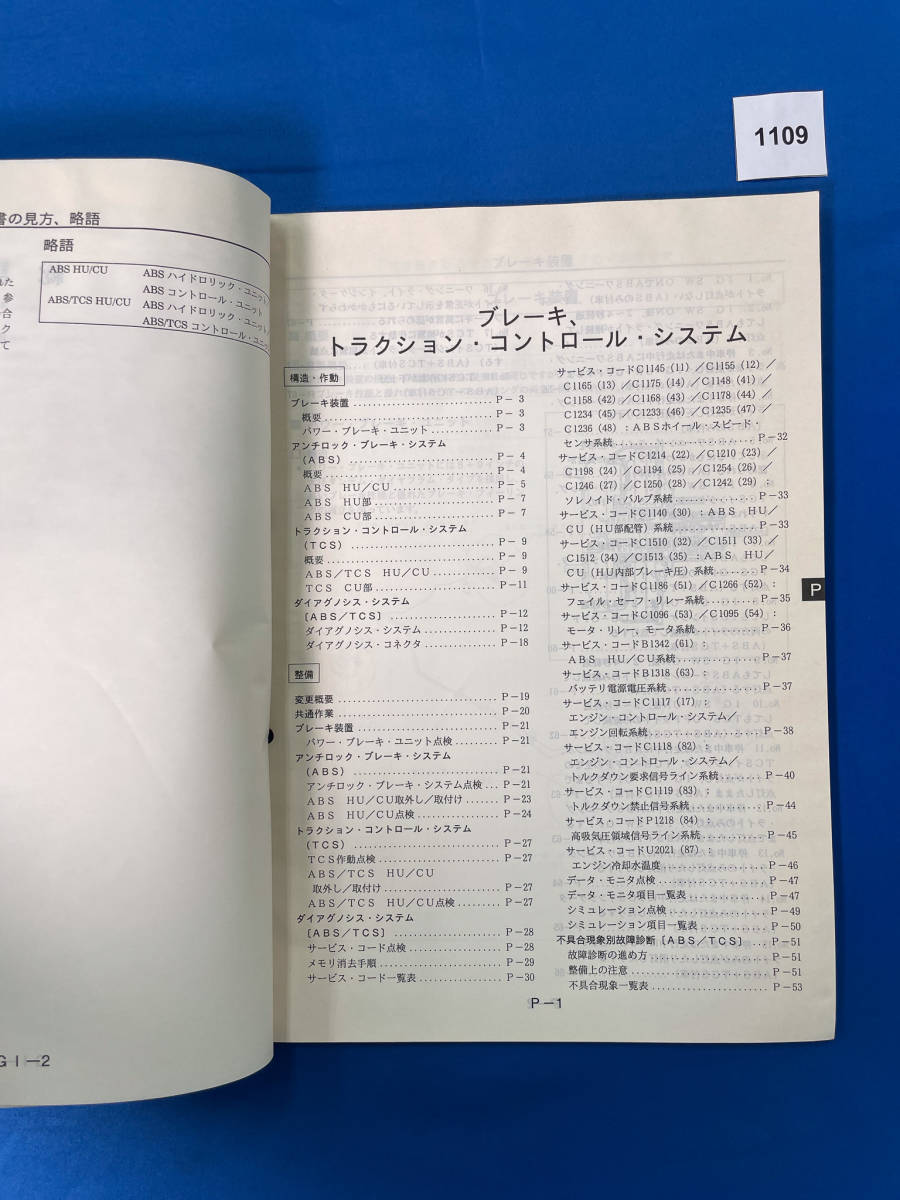 1109
書の見方、略語
略語
ABS HU/CU ABS ハイドロリック・ユニット
ABS コントロール・ユニット
ABS/TCS HU/CU ABS ハイドロリック・ユニット
ABS/TCS コントロール・ユニ
GI－2
ブレーキ、
トラクション・コントロール・システム
構造・作動
ブレーキ装置 P－ 3
概要 P－ 3
パワー・ブレーキ・ユニット P－ 3
アンチロック・ブレーキ・システム
（ABS） P－ 4
概要 P－ 4
ABS HU／CU P－ 5
ABS HU部 P－ 7
ABS CU部 P－ 7
トラクション・コントロール・システム
（TCS） P－ 9
概要 P－ 9
ABS／TCS HU／CU P－ 9
TCS CU部 P－11
ダイアグノシス・システム
〔ABS／TCS〕 P－12
ダイアグノシス・システム P－12
ダイアグノシス・コネクタ P－18
整備
変更概要 P－19
共通作業 P－20
ブレーキ装置 P－21
パワー・ブレーキ・ユニット点検 P－21
アンチロック・ブレーキ・システム
（ABS） P－21
アンチロック・ブレーキ・システム点検 P－21
ABS HU／CU取外し／取付け P－23
ABS HU／CU点検 P－24
トラクション・コントロール・システム
（TCS） P－27
TCS作動点検 P－27
ABS／TCS HU／CU
取外し／取付け P－27
ABS／TCS HU／CU点検 P－27
ダイアグノシス・システム
〔ABS／TCS〕 P－28
サービス・コード点検 P－28
メモリ消去手順 P－29
サービス・コード一覧表 P－30
サービス・コードC1145（11）／C1155（12）／
C1165（13）／C1175（14）／C1148（41）／
C1158（42）／C1168（43）／C1178（44）／
C1234（45）／C1233（46）／C1235（47）／
C1236（48）：ABSホイール・スピード・
センサ系統 P－32
サービス・コードC1214（22）／C1210（23）／
C1198（24）／C1194（25）／C1254（26）／
C1246（27）／C1250（28）／C1242（29）：
ソレノイド・バルブ系統 P－33
サービス・コードC1140（30）：ABS HU／
CU（HU部配管）系統 P－33
サービス・コードC1510（32）／C1511（33）／
C1512（34）／C1513（35）：ABS HU／
CU（HU内部ブレーキ圧）系統 P－34
サービス・コードC1186（51）／C1266（52）：
フェイル・セーフ・リレー系統 P－35
サービス・コードC1096（53）／C1095（54）：
モータ・リレー、モータ系統 P－36
サービス・コードB1342（61）：
ABS HU／CU系統 P－37
サービス・コードB1318（63）：
バッテリ電源電圧系統 P－37
サービス・コードC1117（17）：
エンジン・コントロール・システム／
エンジン回転系統 P－38
サービス・コードC1118（82）：
エンジン・コントロール・システム／
トルクダウン要求信号ライン系統 P－40
サービス・コードC1119（83）：
トルクダウン禁止信号系統 P－44
サービス・コードP1218（84）：
高吸気圧領域信号ライン系統 P－45
サービス・コードU2021（87）：
エンジン冷却水温度 P－46
データ・モニタ点検 P－47
データ・モニタ項目一覧表 P－47
シミュレーション点検 P－49
シミュレーション項目一覧表 P－50
不具合現象別故障診断〔ABS／TCS〕 P－51
故障診断の進め方 P－51
整備上の注意 P－51
不具合現象一覧表 P－53
P
P－1